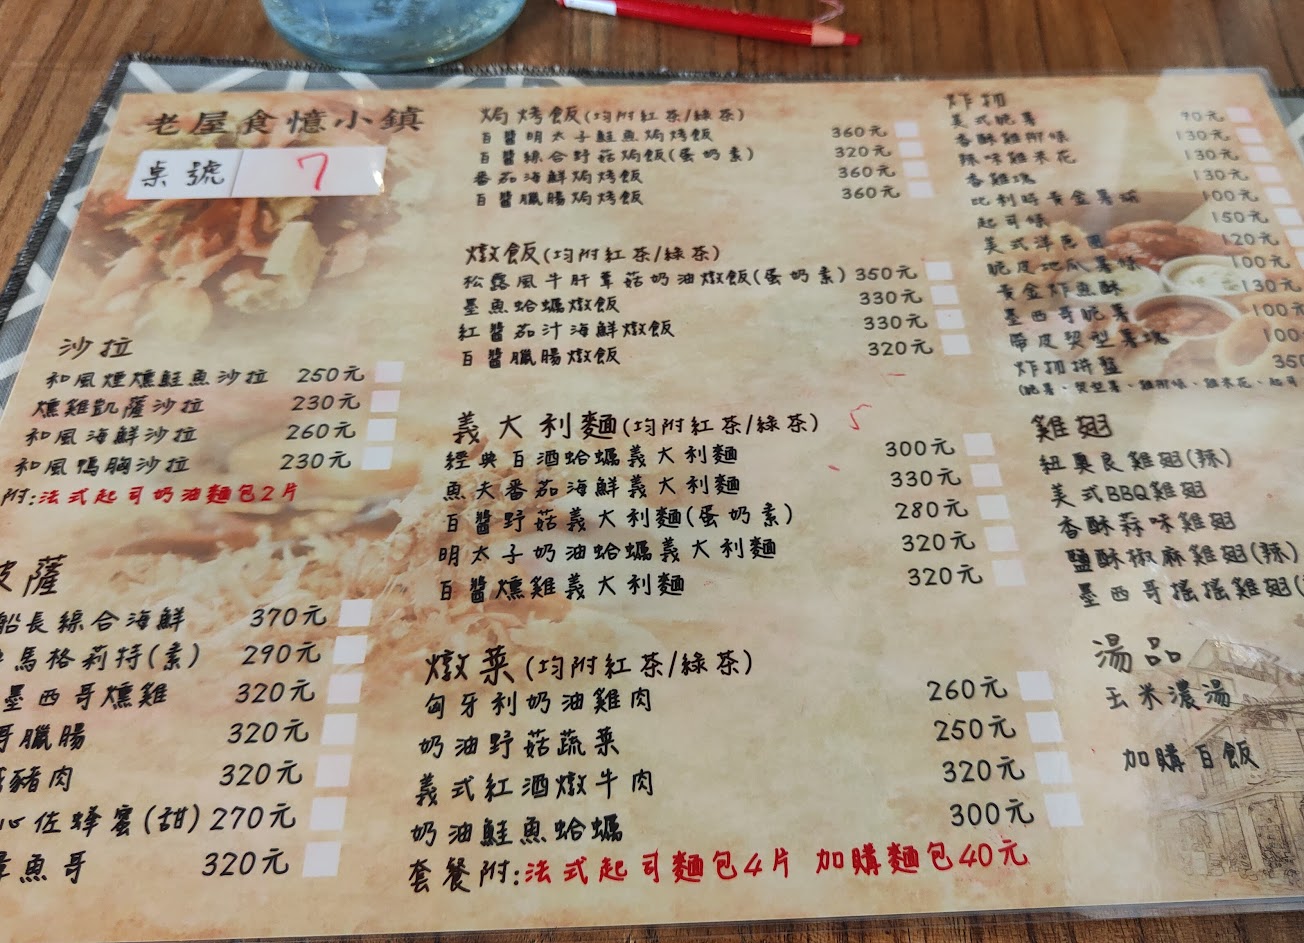 老屋食憶小鎮
桌號 7
沙拉
和風煙燻鮭魚沙拉 250元
燻雞凱薩沙拉 230元
和風海鮮沙拉 260元
和風鴨胸沙拉 230元
附:法式起司奶油麵包2片
披薩
船長綜合海鮮 370元
馬格莉特(素) 290元
墨西哥燻雞 320元
哥臘腸 320元
豬肉 320元
心佐蜂蜜(甜) 270元
章魚哥 320元
焗烤飯(均附紅茶/綠茶)
百醬明太子鮭魚焗烤飯 360元
百醬綜合野菇焗飯(蛋奶素) 320元
番茄海鮮焗烤飯 360元
百醬臘腸焗烤飯 360元
燉飯(均附紅茶/綠茶)
松露風牛肝蕈菇奶油燉飯(蛋奶素) 350元
墨魚蛤蠣燉飯 330元
紅醬茄汁海鮮燉飯 330元
百醬臘腸燉飯 320元
義大利麵(均附紅茶/綠茶) 5
經典百酒蛤蠣義大利麵 300元
魚夫番茄海鮮義大利麵 330元
百醬野菇義大利麵(蛋奶素) 280元
明太子奶油蛤蠣義大利麵 320元
百醬燻雞義大利麵 320元
燉菜(均附紅茶/綠茶)
匈牙利奶油雞肉 260元
奶油野菇蔬菜 250元
義式紅酒燉牛肉 320元
奶油鮭魚蛤蠣 300元
套餐附:法式起司麵包4片 加購麵包40元
炸物
美式脆薯 90元
香酥雞柳條 130元
辣味雞米花 130元
香雞塊 130元
比利時黃金薯球 100元
起司條 150元
美式洋蔥圈 120元
脆皮地瓜薯條 100元
黃金炸魚酥 130元
墨西哥脆薯 100元
帶皮契型薯塊 100
炸物拼盤 350
(脆薯、契型薯、雞柳條、雞米花、起司
雞翅
紐奧良雞翅(辣)
美式BBQ雞翅
香酥蒜味雞翅
鹽酥椒麻雞翅(辣)
墨西哥搖搖雞翅(
湯品
玉米濃湯
加購百飯